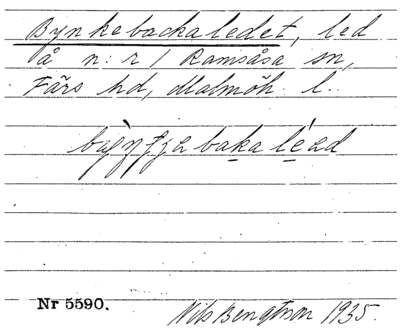 Bynkebackaledet, led
å n:r 1 Ramsåsa sn,
Färs hd, Malmöh. l.
bakaléad
Nr 5590.
Nils Bengtson 1935.